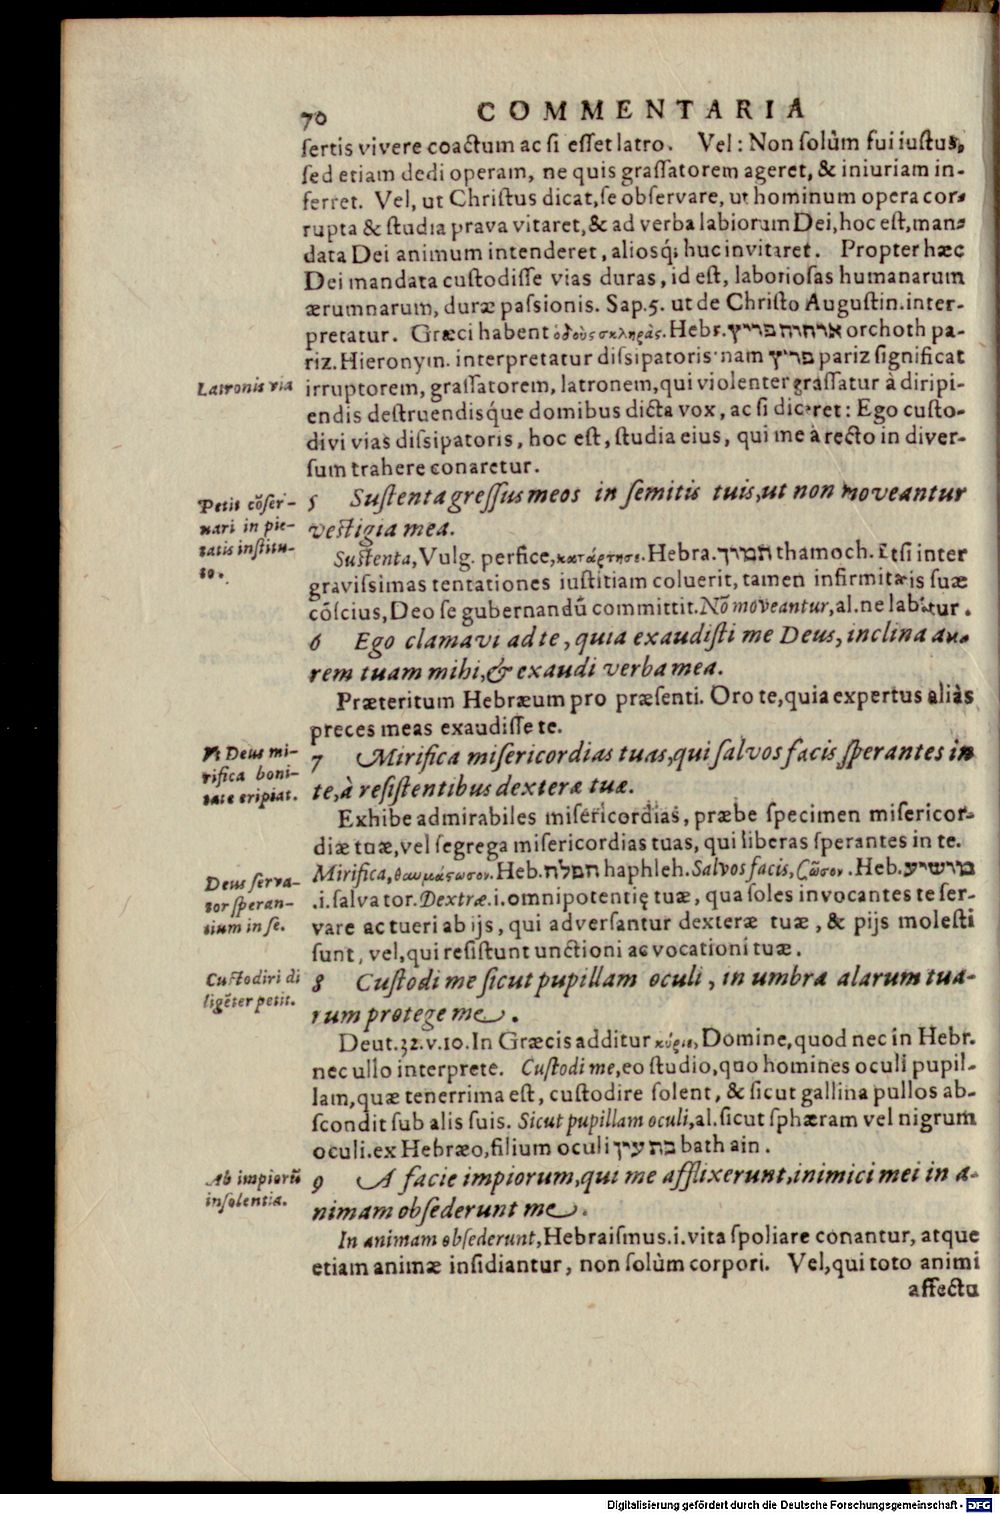 70 COMMENTARIA
sertis vivere coactum ac si esset latro. Vel: Non solùm fui iustus,
sed etiam dedi operam, ne quis grassatorem ageret, & iniuriam in-
ferret. Vel, ut Christus dicat, se observare, ut hominum opera cor-
rupta & studia prava vitaret, & ad verba labiorum Dei, hoc est, man-
data Dei animum intenderet, aliosq; huc invitaret. Propter hæc
Dei mandata custodisse vias duras, id est, laboriosas humanarum
ærumnarum, duræ passionis. Sap.5. ut de Christo Augustin. inter-
pretatur. Græci habent ὁδοὺς σκληράς. Hebr. ארחות פריץ orchoth pa-
riz. Hieronym. interpretatur dissipatoris: nam פריץ pariz significat
Latronis via
irruptorem, grassatorem, latronem, qui violenter grassatur à diripi-
endis destruendisq́ue domibus dicta vox, ac si diceret: Ego custo-
divi vias dissipatoris, hoc est, studia eius, qui me à recto in diver-
sum trahere conaretur.
Petit cõser-
uari in pie-
tatis institu-
to.
5 Sustenta gressus meos in semitis tuis, ut non moveantur
vestigia mea.
Sustenta, Vulg. perfice, κατάρτησε. Hebra. תמוך thamoch. Etsi inter
gravissimas tentationes iustitiam coluerit, tamen infirmitatis suæ
cõscius, Deo se gubernandũ committit. Nõ moveantur, al. ne labātur.
6 Ego clamavi ad te, quia exaudisti me Deus, inclina au-
rem tuam mihi, & exaudi verba mea.
Præteritum Hebræum pro præsenti. Oro te, quia expertus aliàs
preces meas exaudisse te.
Vt Deus mi-
rifica boni-
tate eripiat.
7 Mirifica misericordias tuas, qui salvos facis sperantes in
te, à resistentibus dexteræ tuæ.
Exhibe admirabiles misericordias, præbe specimen misericor-
diæ tuæ, vel segrega misericordias tuas, qui liberas sperantes in te.
Mirifica, θαυμάςωσον. Heb. הפלה haphleh. Salvos facis, ζῶσον. Heb. מושיע
Deus serva-
tor speran-
tium in se.
.i. salvator. Dextræ .i. omnipotentię tuæ, qua soles invocantes te ser-
vare ac tueri ab ijs, qui adversantur dexteræ tuæ, & pijs molesti
sunt, vel, qui resistunt unctioni ac vocationi tuæ.
Custodiri di
ligẽter petit.
8 Custodi me sicut pupillam oculi, in umbra alarum tua-
rum protege me.
Deut. 32. v. 10. In Græcis additur κύριε, Domine, quod nec in Hebr.
nec ullo interprete. Custodi me, eo studio, quo homines oculi pupil-
lam, quæ tenerrima est, custodire solent, & sicut gallina pullos ab-
scondit sub alis suis. Sicut pupillam oculi, al. sicut sphæram vel nigrum
oculi. ex Hebræo, filium oculi בת עין bath ain.
Ab impiorũ
insolentia.
9 A facie impiorum, qui me afflixerunt, inimici mei in a-
nimam obsederunt me.
In animam obsederunt, Hebraismus .i. vita spoliare conantur, atque
etiam animæ insidiantur, non solùm corpori. Vel, qui toto animi
affectu
Digitalisierung gefördert durch die Deutsche Forschungsgemeinschaft - DFG